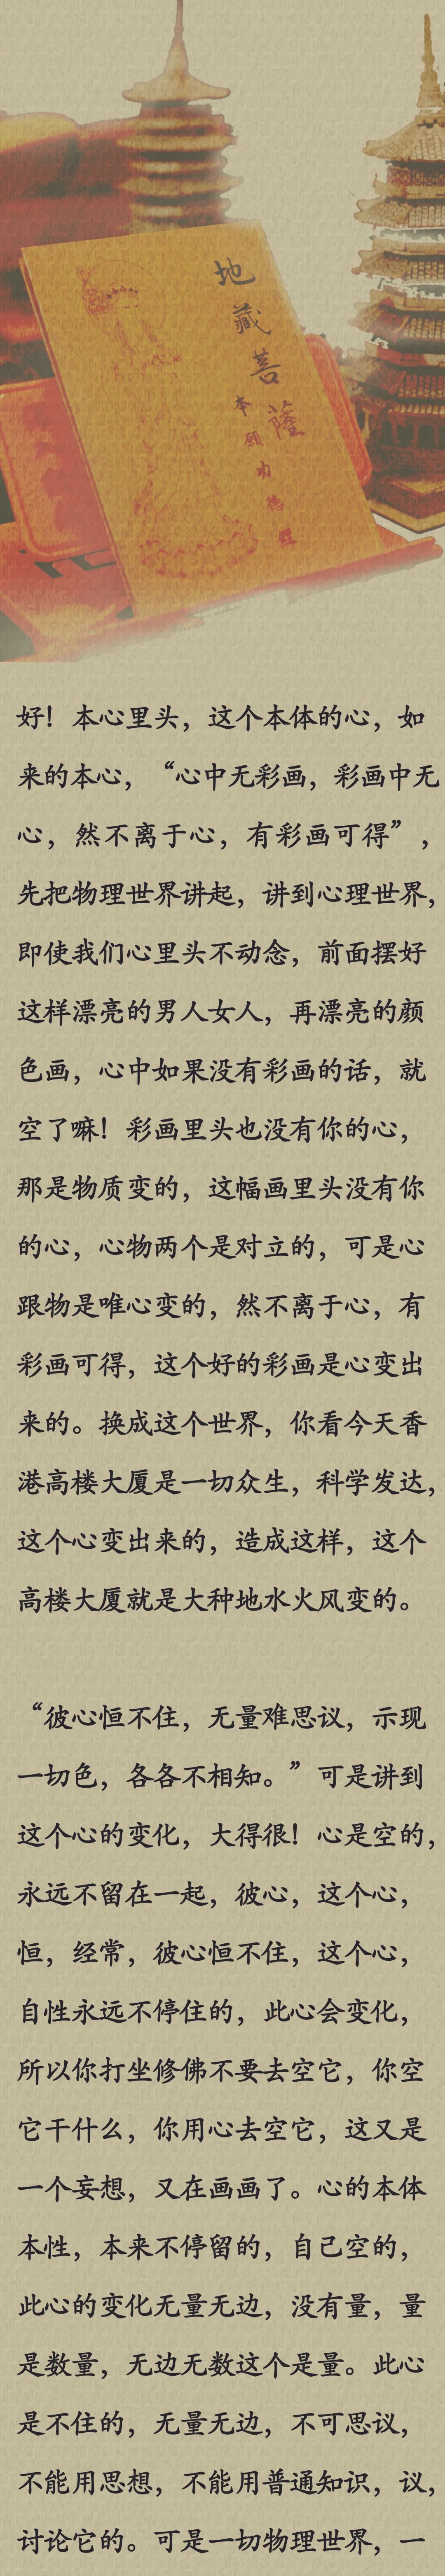 地藏菩薩
本願功德經
好！本心里头，这个本体的心，如
来的本心，“心中无彩画，彩画中无
心，然不离于心，有彩画可得”，
先把物理世界讲起，讲到心理世界，
即使我们心里头不动念，前面摆好
这样漂亮的男人女人，再漂亮的颜
色画，心中如果没有彩画的话，就
空了嘛！彩画里头也没有你的心，
那是物质变的，这幅画里头没有你
的心，心物两个是对立的，可是心
跟物是唯心变的，然不离于心，有
彩画可得，这个好的彩画是心变出
来的。换成这个世界，你看今天香
港高楼大厦是一切众生，科学发达，
这个心变出来的，造成这样，这个
高楼大厦就是大种地水火风变的。
“彼心恒不住，无量难思议，示现
一切色，各各不相知。”可是讲到
这个心的变化，大得很！心是空的，
永远不留在一起，彼心，这个心，
恒，经常，彼心恒不住，这个心，
自性永远不停住的，此心会变化，
所以你打坐修佛不要去空它，你空
它干什么，你用心去空它，这又是
一个妄想，又在画画了。心的本体
本性，本来不停留的，自己空的，
此心的变化无量无边，没有量，量
是数量，无边无数这个是量。此心
是不住的，无量无边，不可思议，
不能用思想，不能用普通知识，议，
讨论它的。可是一切物理世界，一